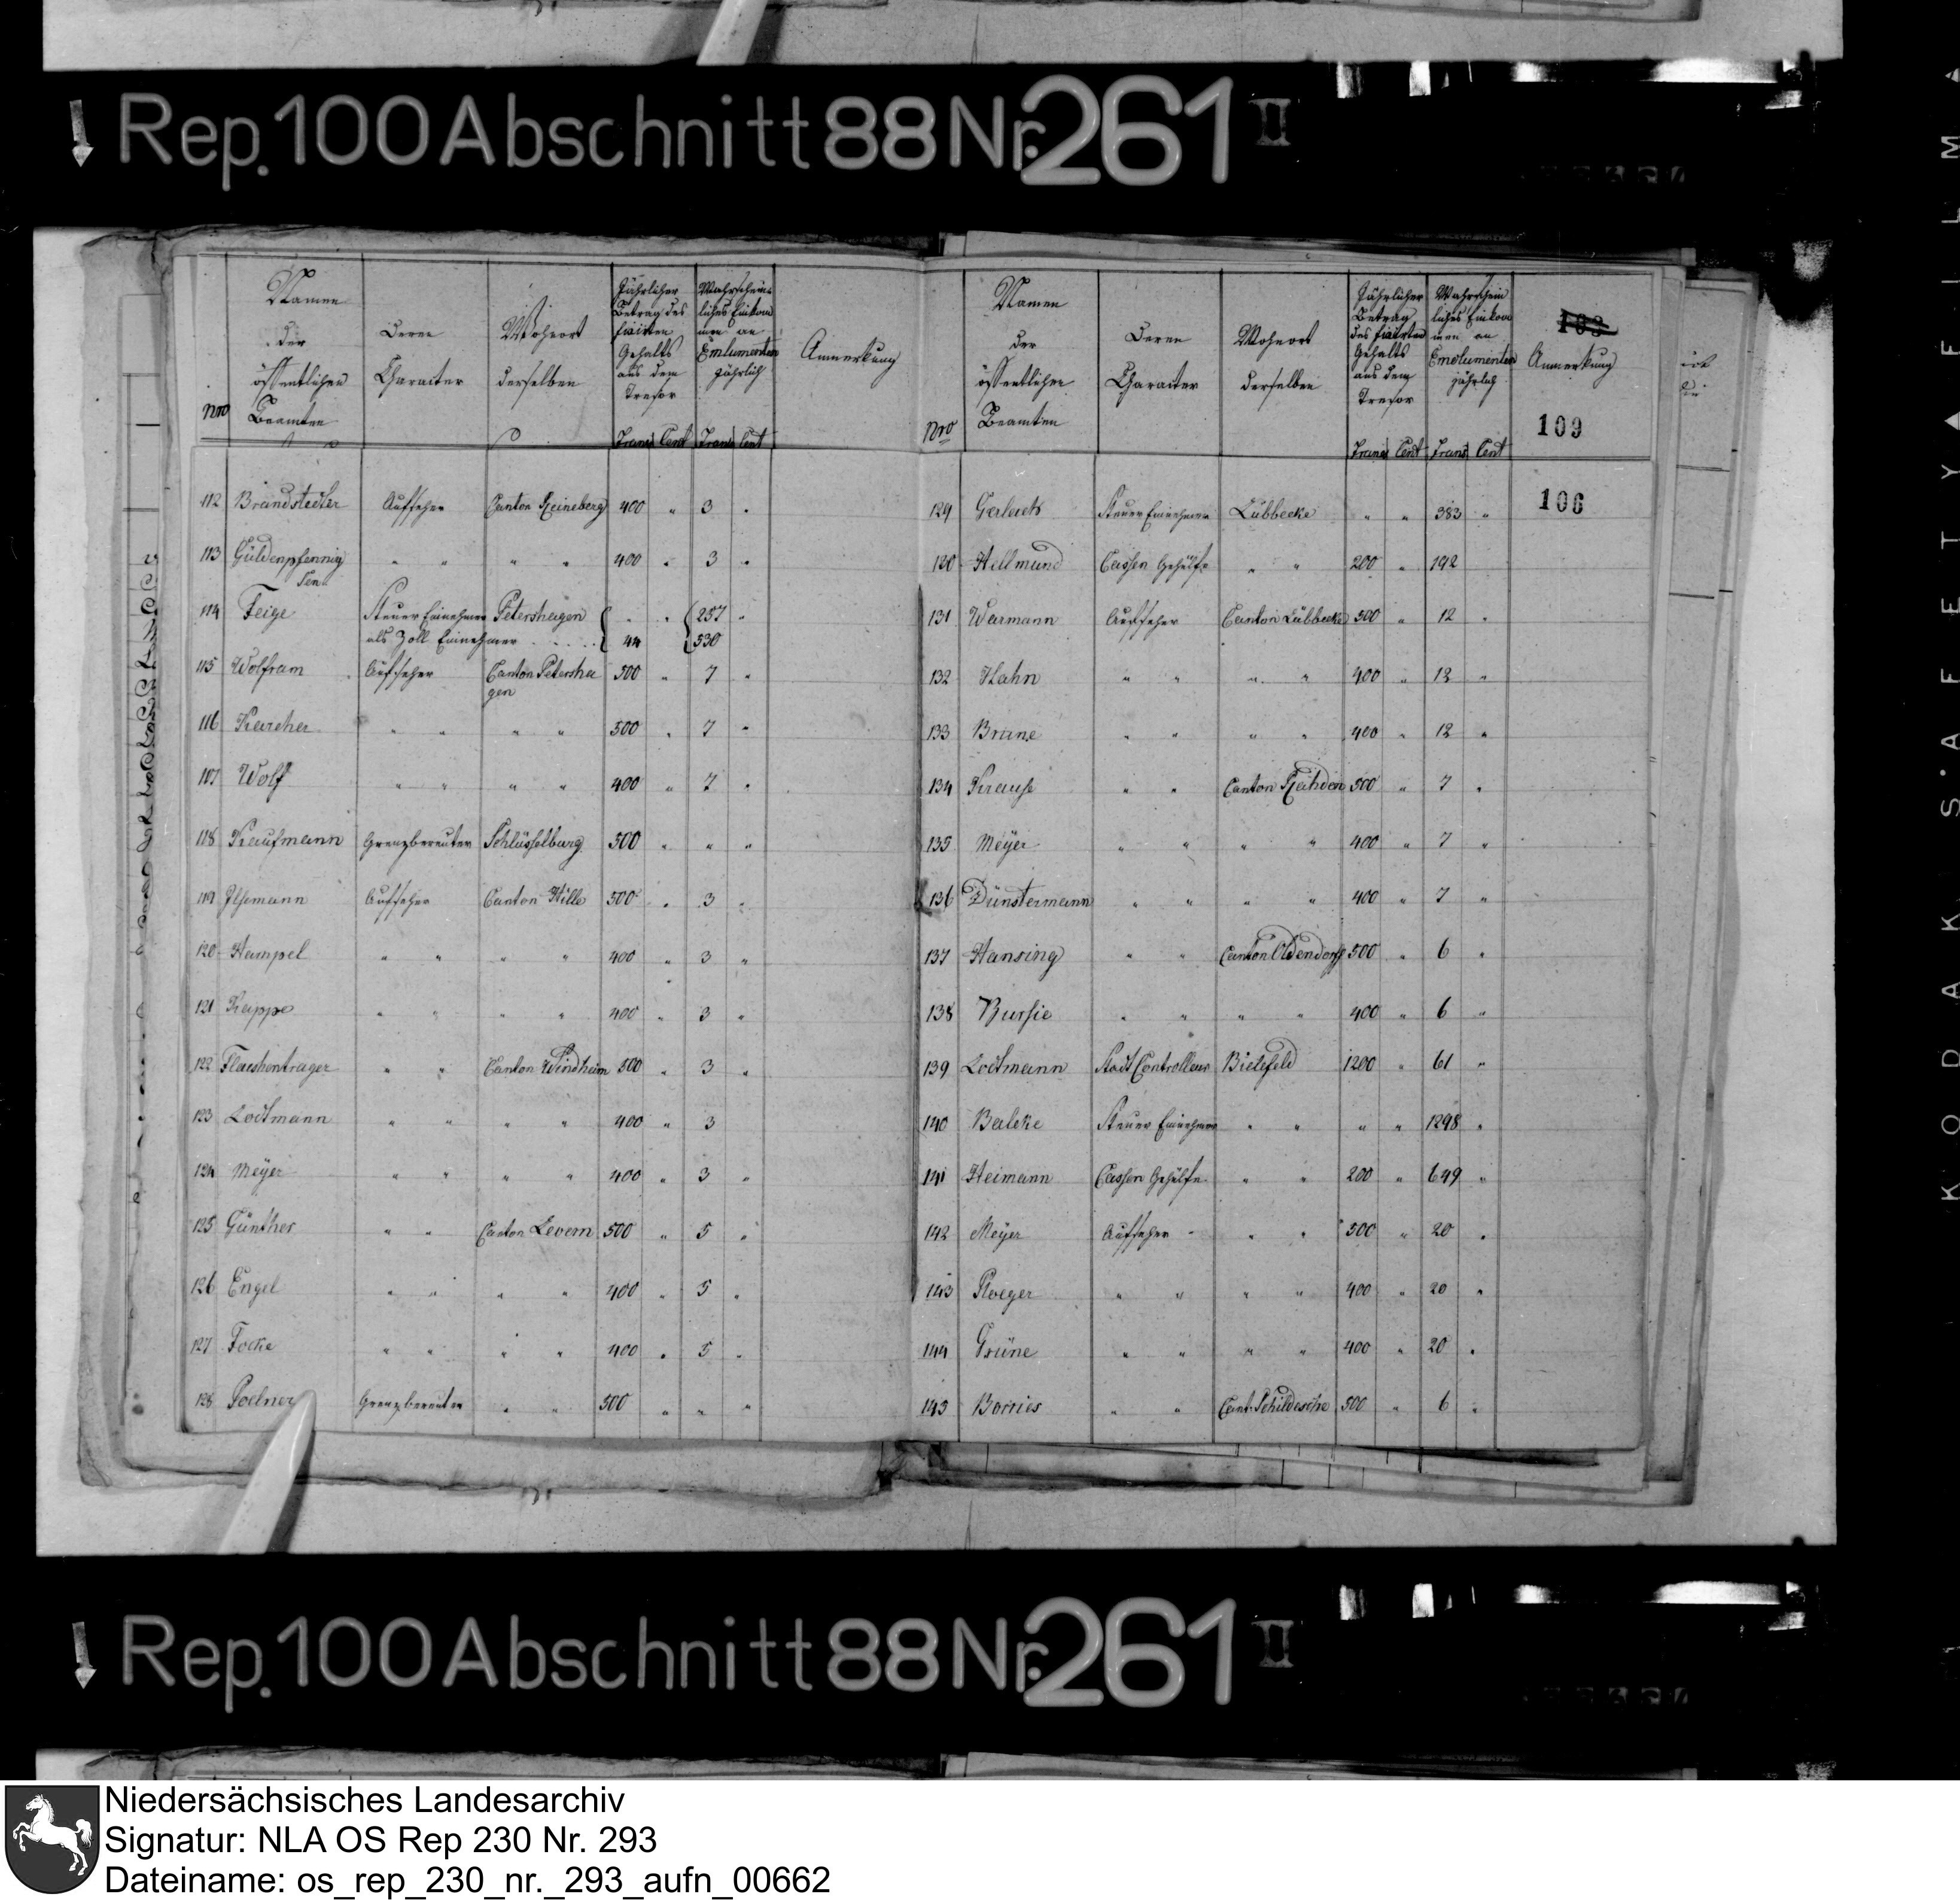 Rep. 100 Abschnitt 88 Nr. 261 II
Nro
Namen der öffentlichen Beamten
Deren Charakter
Wohnort derselben
Jährlicher Betrag des fixirten Gehalts aus dem Tresor
Francs Cent
Wahrscheinliches Einkommen an Emlumenten jährlich
Francs Cent
Anmerkung
112 Brandstedter Aufseher Canton Reineberg 400 " 3 "
113 Güldenpfennig Sen. " " " " 400 " 3 "
114 Feige Steuer Einnehmer Petershagen " " 257 "
als Zoll Einnehmer . . . . . 44 530
115 Wolfram Aufseher Canton Petershagen 500 " 7 "
116 Karcher " " " " 500 " 7 "
117 Wolf " " " " 400 " 7 "
118 Kaufmann Grenzbereuter Schlüsselburg 500 " " "
119 Ilsemann Aufseher Canton Hille 500 " 3 "
120 Hampel " " " " 400 " 3 "
121 Kappe " " " " 400 " 3 "
122 Flashentrager " " Canton Windheim 500 " 3 "
123 Lodtmann " " " " 400 " 3
124 Meÿer " " " " 400 " 3 "
125 Günther " " Canton Levern 500 " 5 "
126 Engel " " " " 400 " 5 "
127 Focke " " " " 400 " 5 "
128 Poelner Grenzbereuter " " 500 " " "
Nro
Namen der öffentlichen Beamten
Deren Charakter
Wohnort derselben
Jährlicher Betrag des fixirten Gehalts aus dem Tresor
Francs Cent
Wahrscheinliches Einkommen an Emolumenten jährlich
Francs Cent
103
Anmerkung
109
106
129 Gerlach Steuer Einnehmer Lübbecke " " 383 "
130 Hillmund Cassen Gehülfe " " 200 " 192
131 Warmann Aufseher Canton Lübbecke 500 " 12 "
132 Hahn " " " " 400 " 12 "
133 Brune " " " " 400 " 12 "
134 Krause " " Canton Rahden 500 " 7 "
135 Meÿer " " " " 400 " 7 "
136 Dünstermann " " " " 400 " 7 "
137 Hansing " " Canton Oldendorff 500 " 6 "
138 Bursie " " " " 400 " 6 "
139 Lodtmann Stadt Controlleur Bielefeld 1200 " 61 "
140 Balcke Steuer Einnehmer " " " " 1298 "
141 Heimann Cassen Gehülfe " " 200 " 649 "
142 Meÿer Aufseher " " 500 " 20 "
143 Ploeger " " " " 400 " 20 "
144 Grüne " " " " 400 " 20 "
145 Borries " " Cant. Schildesche 500 " 6 "
Rep. 100 Abschnitt 88 Nr. 261 II
KODAK · SAFETY FILM
Niedersächsisches Landesarchiv
Signatur: NLA OS Rep 230 Nr. 293
Dateiname: os_rep_230_nr._293_aufn_00662